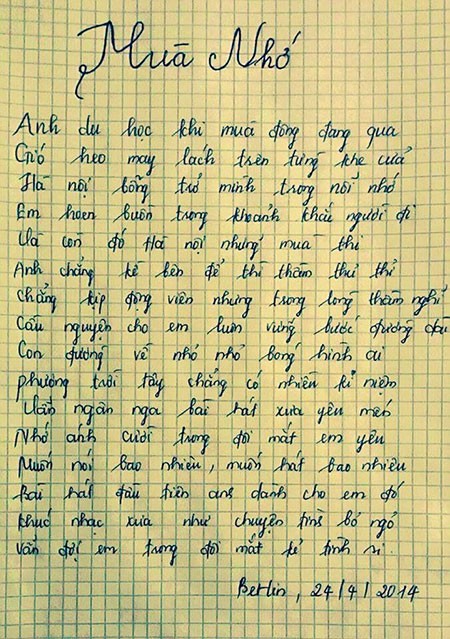 Mùa Nhớ
Anh du học khi mùa đông đang qua
Gió heo may lách trên từng khe cửa
Hà nội bỗng trở mình trong nỗi nhớ
Em hoen buồn trong khoảnh khắc người đi
Và còn đó Hà nội những mùa thi
Anh chẳng kề bên để thì thầm thủ thỉ
Chẳng kịp động viên nhưng trong lòng thầm nghĩ
Cầu nguyện cho em luôn vững bước đường dài
Con đường về nhỏ nhỏ bóng hình ai
phương trời tây chẳng có nhiều kỉ niệm
Vẫn ngân nga bài hát xưa yêu mến
Nhớ ánh cười trong đôi mắt em yêu
Muốn nói bao nhiêu, muốn hát bao nhiêu
Bài hát đầu tiên anh dành cho em đó
Khúc nhạc xưa như chuyện tình bỏ ngỏ
vẫn đợi em trong đôi mắt kẻ tình si.
Berlin, 24/4/2014